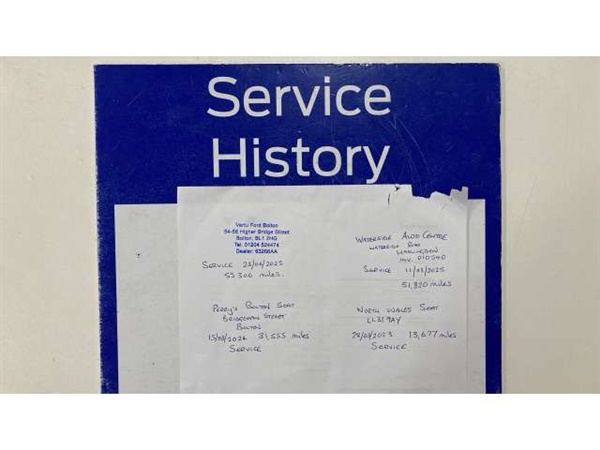 Service
History
Vertu Ford Bolton
54-56 Higher Bridge Street
Bolton, BL1 2HG
Tel. 01204 524474
Dealer: 63266AA
SERVICE
55,306 miles.
WATERSIDE AUTO CENTRE
WATERSIDE ROAD
INV. 010540
SERVICE 11/03/2025
51,820 miles
PERRY'S BOLTON SEAT
BRIDGEMAN STREET
BOLTON
31,555 miles
SERVICE
NORTH WALES SEAT
LL31 9AY
13,677 miles
SERVICE